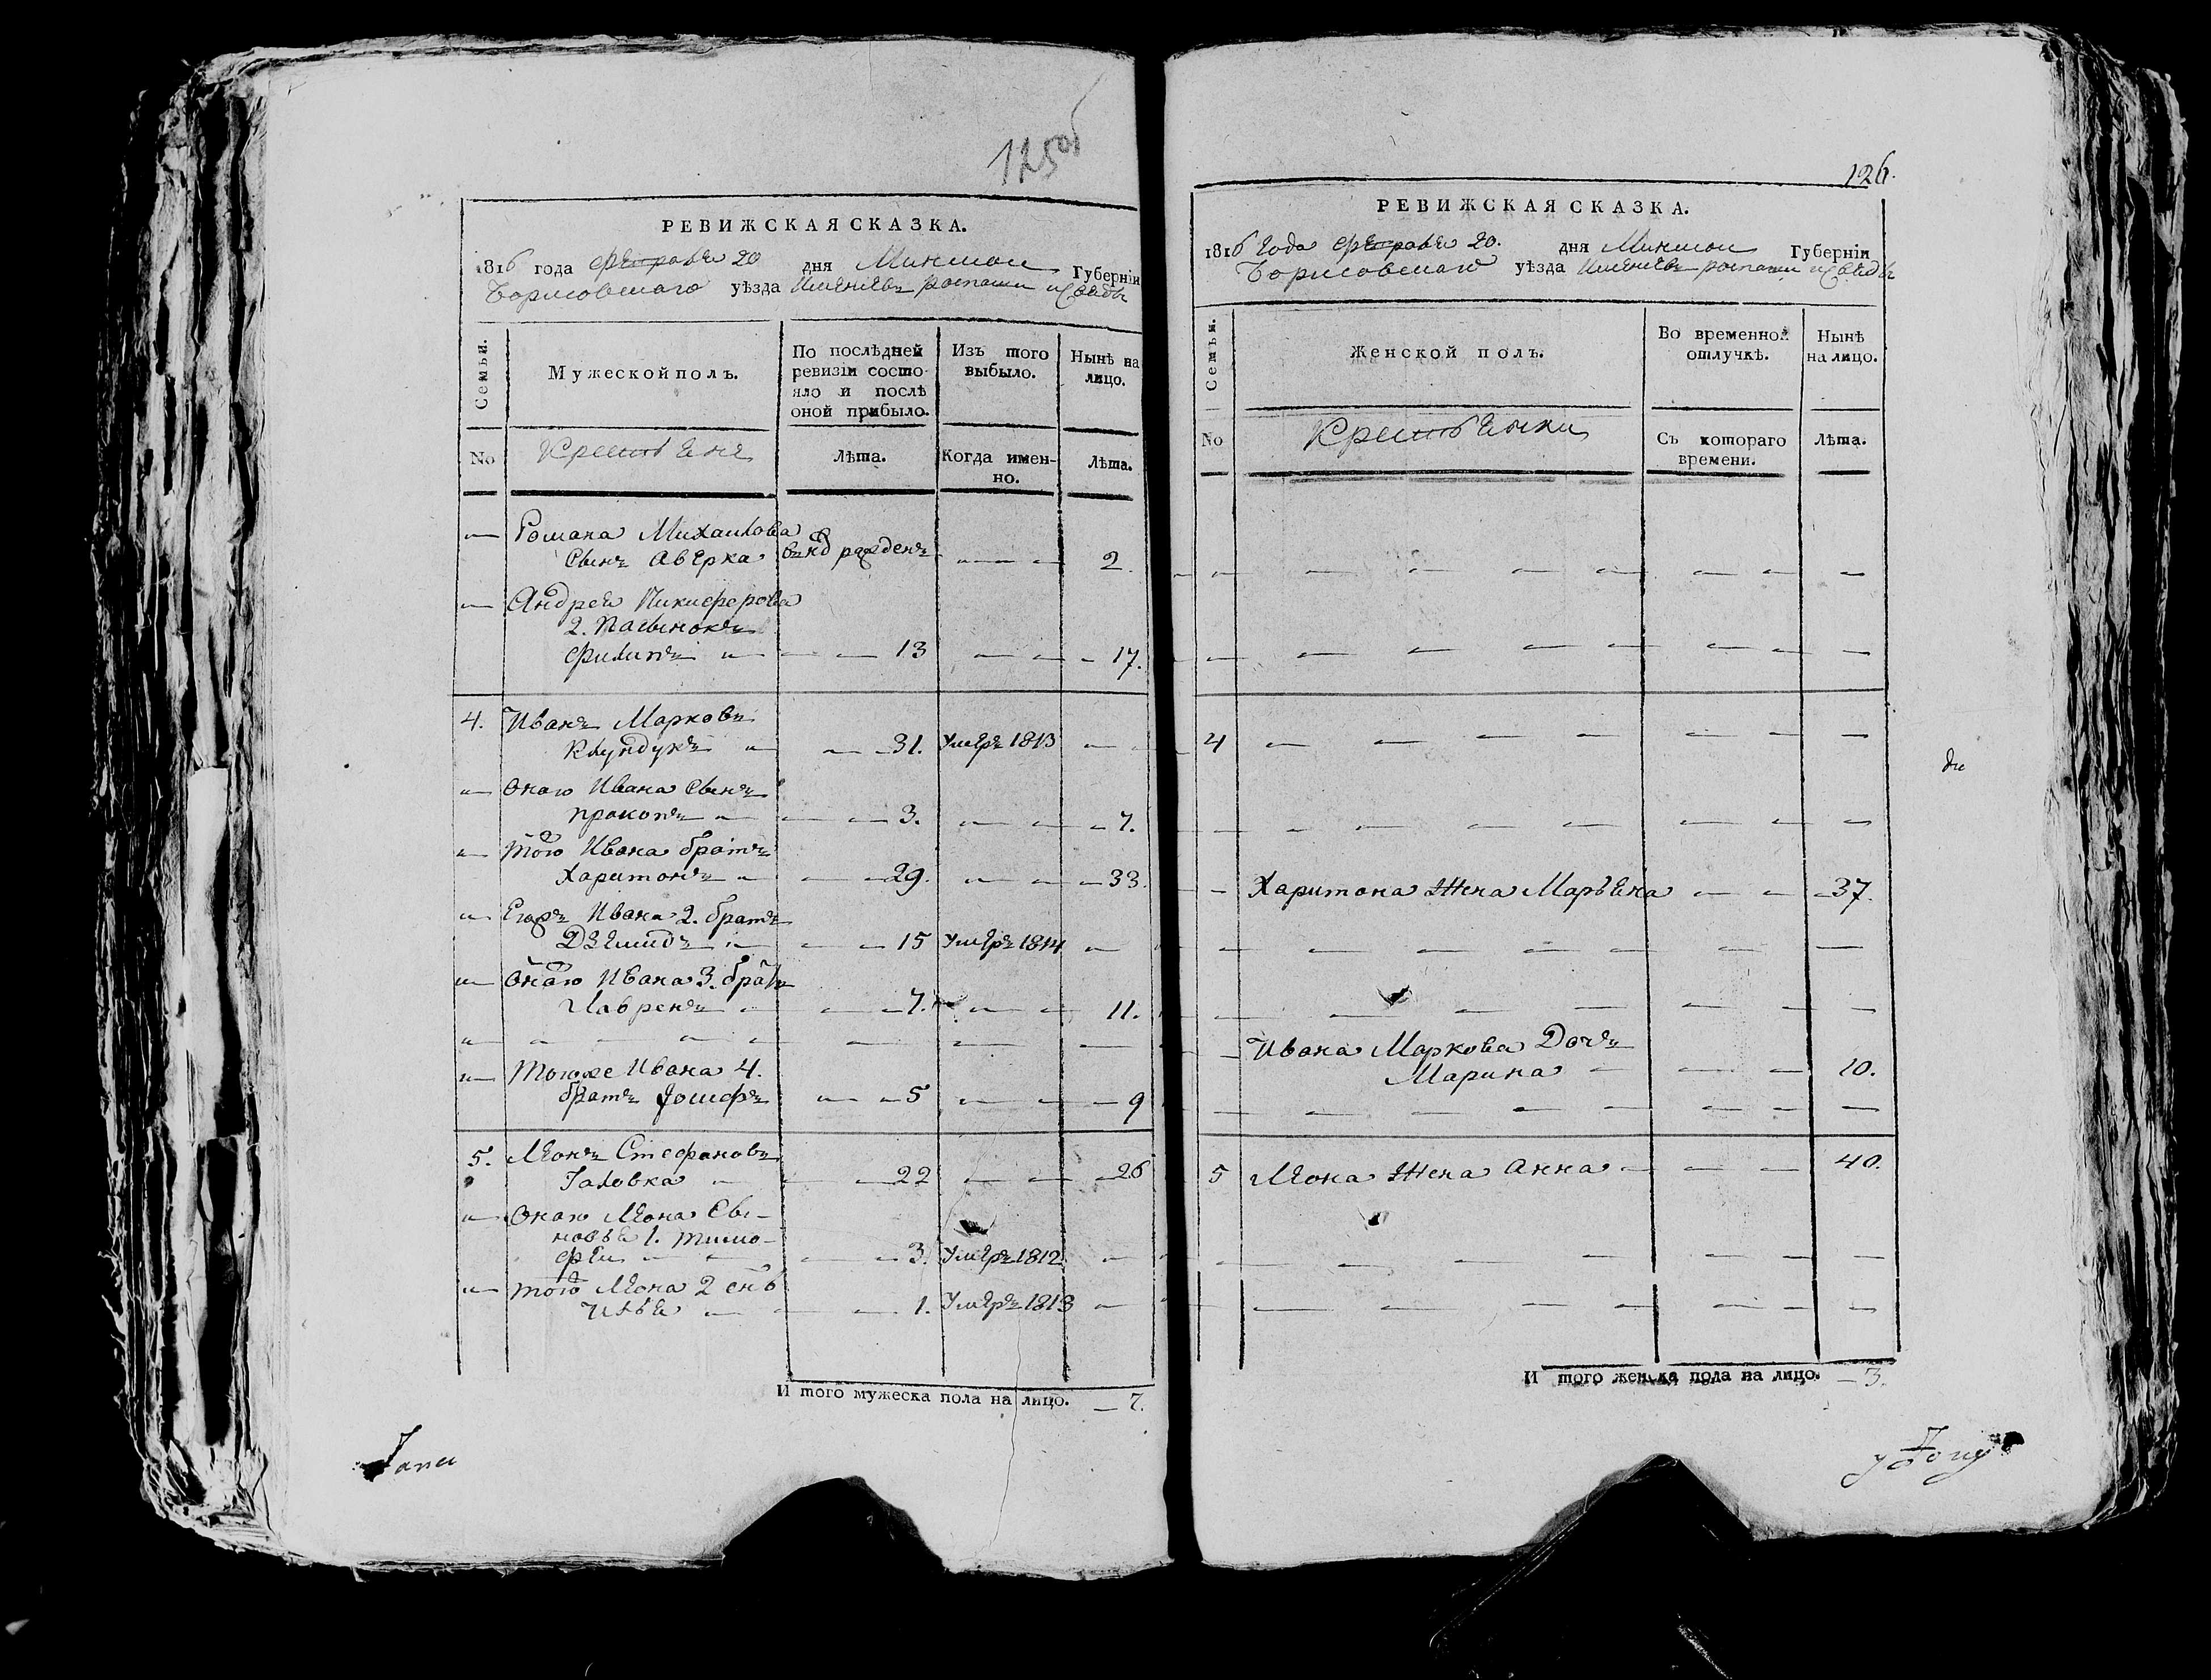 125об
РЕВИЖСКАЯ СКАЗКА.
1816 года Февраля 20 дня Минской Губерніи
Борисовскаго уѣзда
Семьи.
Мужеской полъ.
По послѣдней ревизіи состояло и послѣ оной прибыло.
Изъ того выбыло.
Нынѣ на лицо.
No
Крестьяне
Лѣта.
Когда именно.
Лѣта.
— Романа Михайлова
Сынъ Аверка — — 2.
— Андрея Никиферова
2. Пасынокъ
Филипъ — — — 13 — — — 17.
4. Иванъ Марковъ
Клундукъ — — — 31. Умеръ 1813 — —
— Онаго Ивана Сынъ
Прокопъ — — — 3. — — — 7.
— того Ивана братъ
Харитонъ — — — 29. — — — 33.
— Егожъ Ивана 2. братъ
Дземидъ — — — 15 Умеръ 1814 —
— Онаго Ивана 3. братъ
Лавренъ — — — 7. — — 11.
— — — — — — — —
— Тогоже Ивана 4.
братъ Іосифъ — — 5 — — — 9
5. Леонъ Стефановъ
Галовка — — — 22 — — — 26
— Онаго Леона Сы-
новья 1. Тимо-
фей — — — — 3. Умеръ 1812 —
— того Леона 2 снъ
Илья — — — 1. Умеръ 1813 —
И того мужеска пола на лицо. — 7.
126.
РЕВИЖСКАЯ СКАЗКА.
1816 года Февраля 20. дня Минской Губерніи
Борисовскаго уѣзда
Семьи.
Женской полъ.
Во временной отлучкѣ.
Нынѣ на лицо.
No
Крестьянки
Съ котораго времени.
Лѣта.
— — — — — — — —
— — — — — — — —
4 — — — — — — —
— — — — — — — —
— Харитона Жена Марьяна — — — 37.
— — — — — — — —
— — — — — — —
— Ивана Маркова Дочъ
Марина — — — 10.
— — — — — — —
5 Леона Жена Анна — — — 40.
— — — — — —
— — — — — — —
И того женска пола на лицо. — 3.